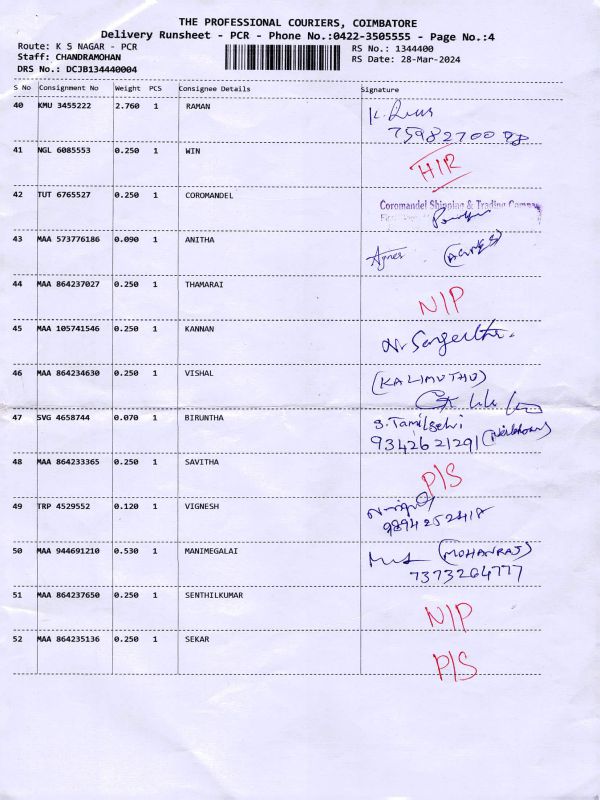 THE PROFESSIONAL COURIERS, COIMBATORE
Delivery Runsheet - PCR - Phone No.:0422-3505555 - Page No.:4
Route: K S NAGAR - PCR RS No.: 1344400
Staff: CHANDRAMOHAN RS Date: 28-Mar-2024
DRS No.: DCJB134440004
S No Consignment No Weight PCS Consignee Details Signature
40 KMU 3455222 2.760 1 RAMAN
7598270098
41 NGL 6085553 0.250 1 WIN H/R
42 TUT 6765527 0.250 1 COROMANDEL Coromandel Shipping & Trading Company
43 MAA 573776186 0.090 1 ANITHA Agnes (AGNES)
44 MAA 864237027 0.250 1 THAMARAI N/P
45 MAA 105741546 0.250 1 KANNAN
46 MAA 864234630 0.250 1 VISHAL (KALIMUTHU)
47 SVG 4658744 0.070 1 BIRUNTHA S.Tamilselvi
9342621291
48 MAA 864233365 0.250 1 SAVITHA P/S
49 TRP 4529552 0.120 1 VIGNESH
9894252418
50 MAA 944691210 0.530 1 MANIMEGALAI (MOHANRAJ)
7373264777
51 MAA 864237650 0.250 1 SENTHILKUMAR N/P
52 MAA 864235136 0.250 1 SEKAR P/S